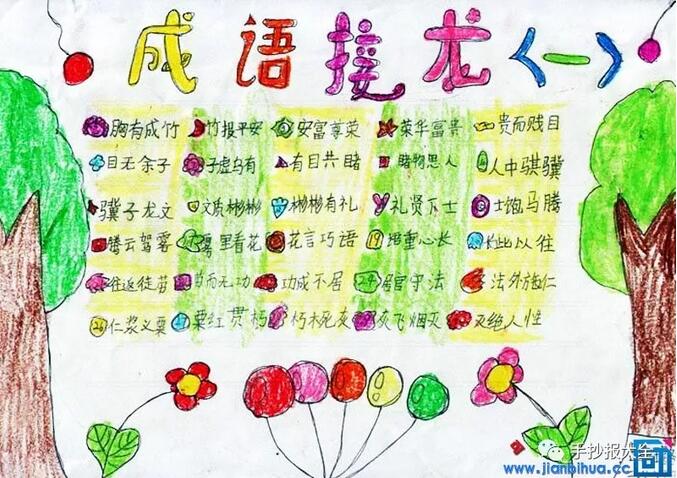 成语接龙<一>
胸有成竹 竹报平安 安富尊荣 荣华富贵 一贵而贱目
目无余子 子虚乌有 有目共睹 睹物思人 人中骐骥
骥子龙文 文质彬彬 彬彬有礼 礼贤下士 士饱马腾
腾云驾雾 雾里看花 花言巧语 19 语重心长 长此以往
往返徒劳 劳而无功 功成不居 24 居官守法 法外施仁
26 仁浆义粟 粟红贯朽 朽木死灰 灰飞烟灭 灭绝人性
手抄报大全
www.jianbihua.cc